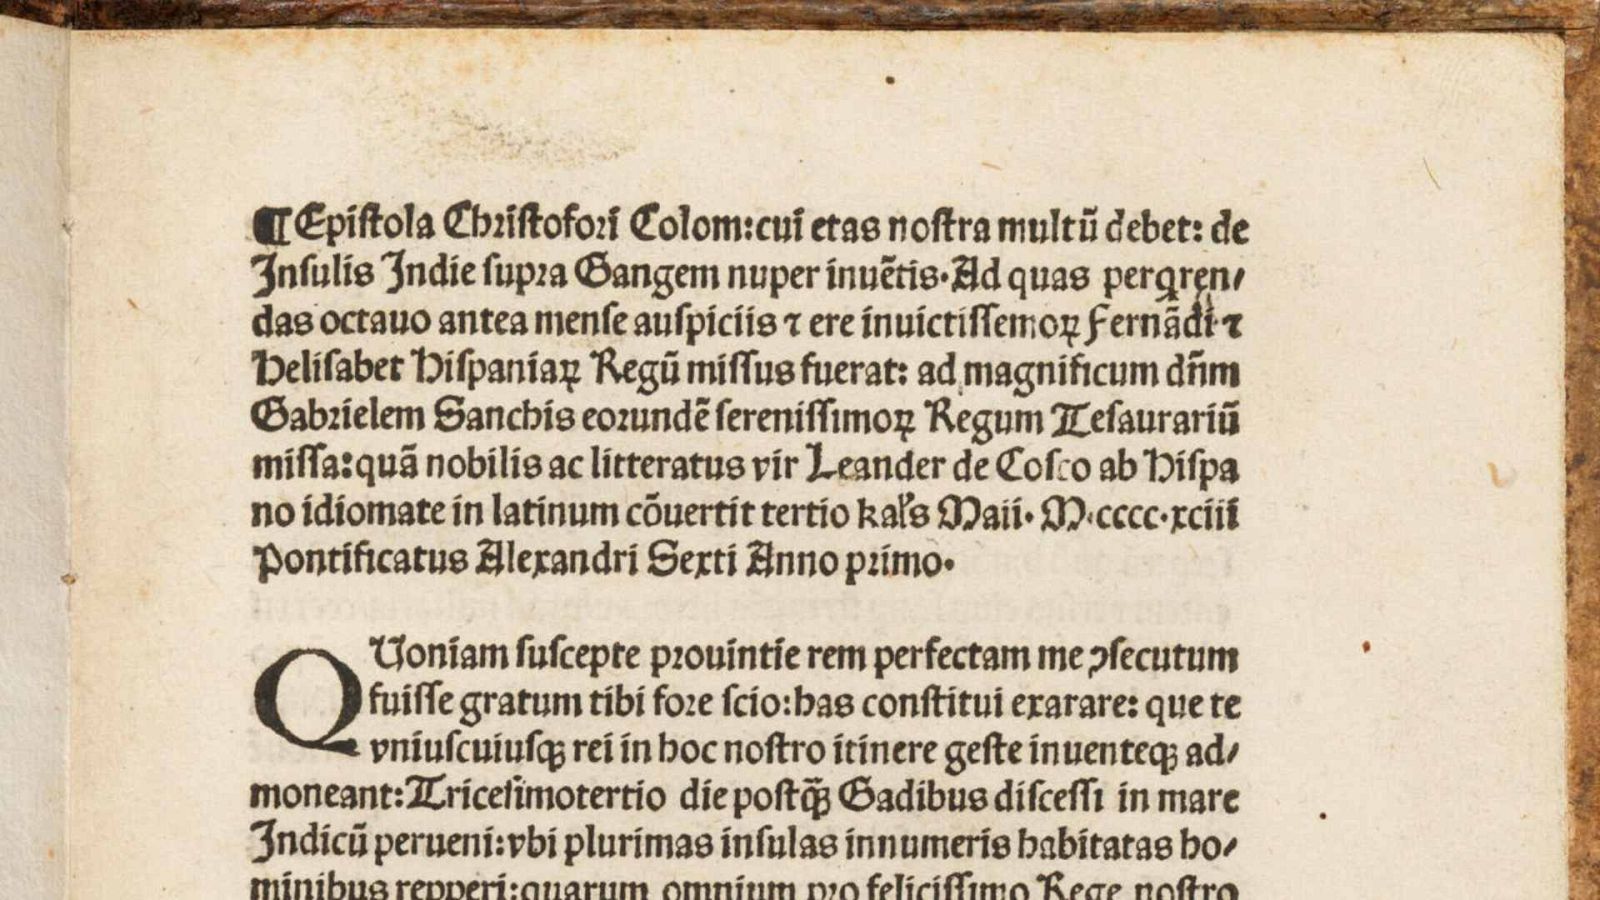 ¶ Epiſtola Chꝛiſtofoꝛi Colom: cui etas noſtra multū debet: de
Inſulis Indie ſupꝛa Gangem nuper inuẽtis. Ad quas perqren⸗
das octauo antea menſe auſpiciis ⁊ ere inuictiſſemoꝝ Fernãdi ⁊
Heliſabet Hiſpaniaꝝ Regū miſſus fuerat: ad magnificum dñm
Gabꝛielem Sanchis eoꝛundẽ ſereniſſimoꝝ Regum Teſaurariū
miſſa: quã nobilis ac litteratus vir Leander de Coſco ab Hiſpa
no idiomate in latinum cõuertit tertio kal's Maii. M.cccc.xciii
Pontificatus Alexandri Sexti Anno pꝛimo.
QUoniam ſuſcepte pꝛouintie rem perfectam me ꝯſecutum
fuiſſe gratum tibi foꝛe ſcio: has conſtitui exarare: que te
vniuſcuiuſqꝫ rei in hoc noſtro itinere geſte inuenteqꝫ ad⸗
moneant: Triceſimotertio die poſtqꝫ̃ Gadibus diſceſſi in mare
Indicū perueni: vbi plurimas inſulas innumeris habitatas ho⸗
minibus repperi: quarum omnium pꝛo feliciſſimo Rege noſtro